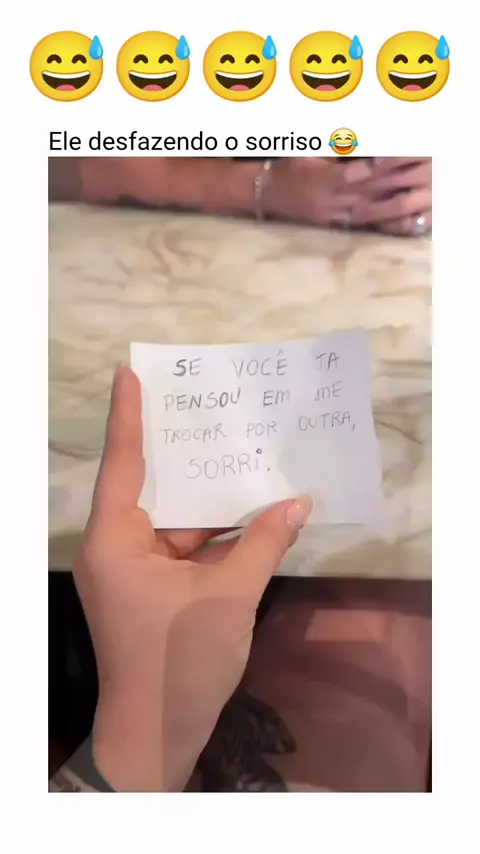 Ele desfazendo o sorriso 😂
SE VOCÊ JA
PENSOU EM ME
TROCAR POR OUTRA,
SORRi.